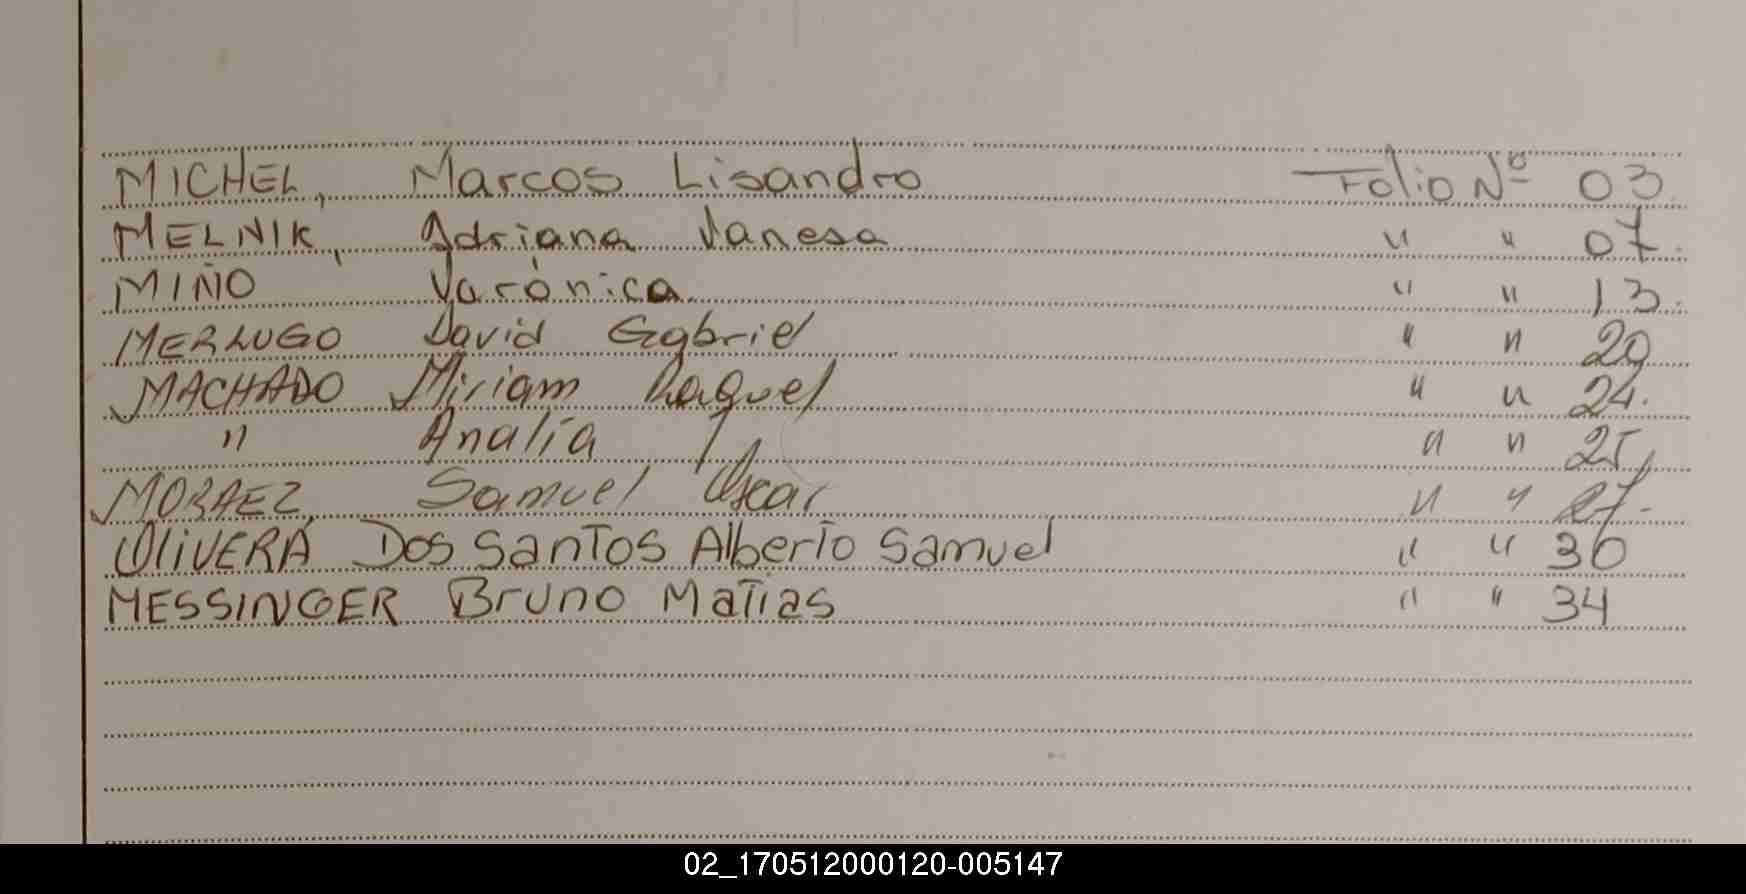 MICHEL, Marcos Lisandro Folio Nº 03.
MELNIK, Adriana Vanesa " " 07.
MIÑO Varónica. " " 13.
MERLUGO David Gabriel " " 20
MACHADO Miriam Raquel " " 24.
" Analía " " 25
MORAEZ, Samuel Oscar " " 27.-
OliVERA Dos Santos Alberto Samuel " " 30
MESSINGER Bruno Matias " " 34
02_170512000120-005147